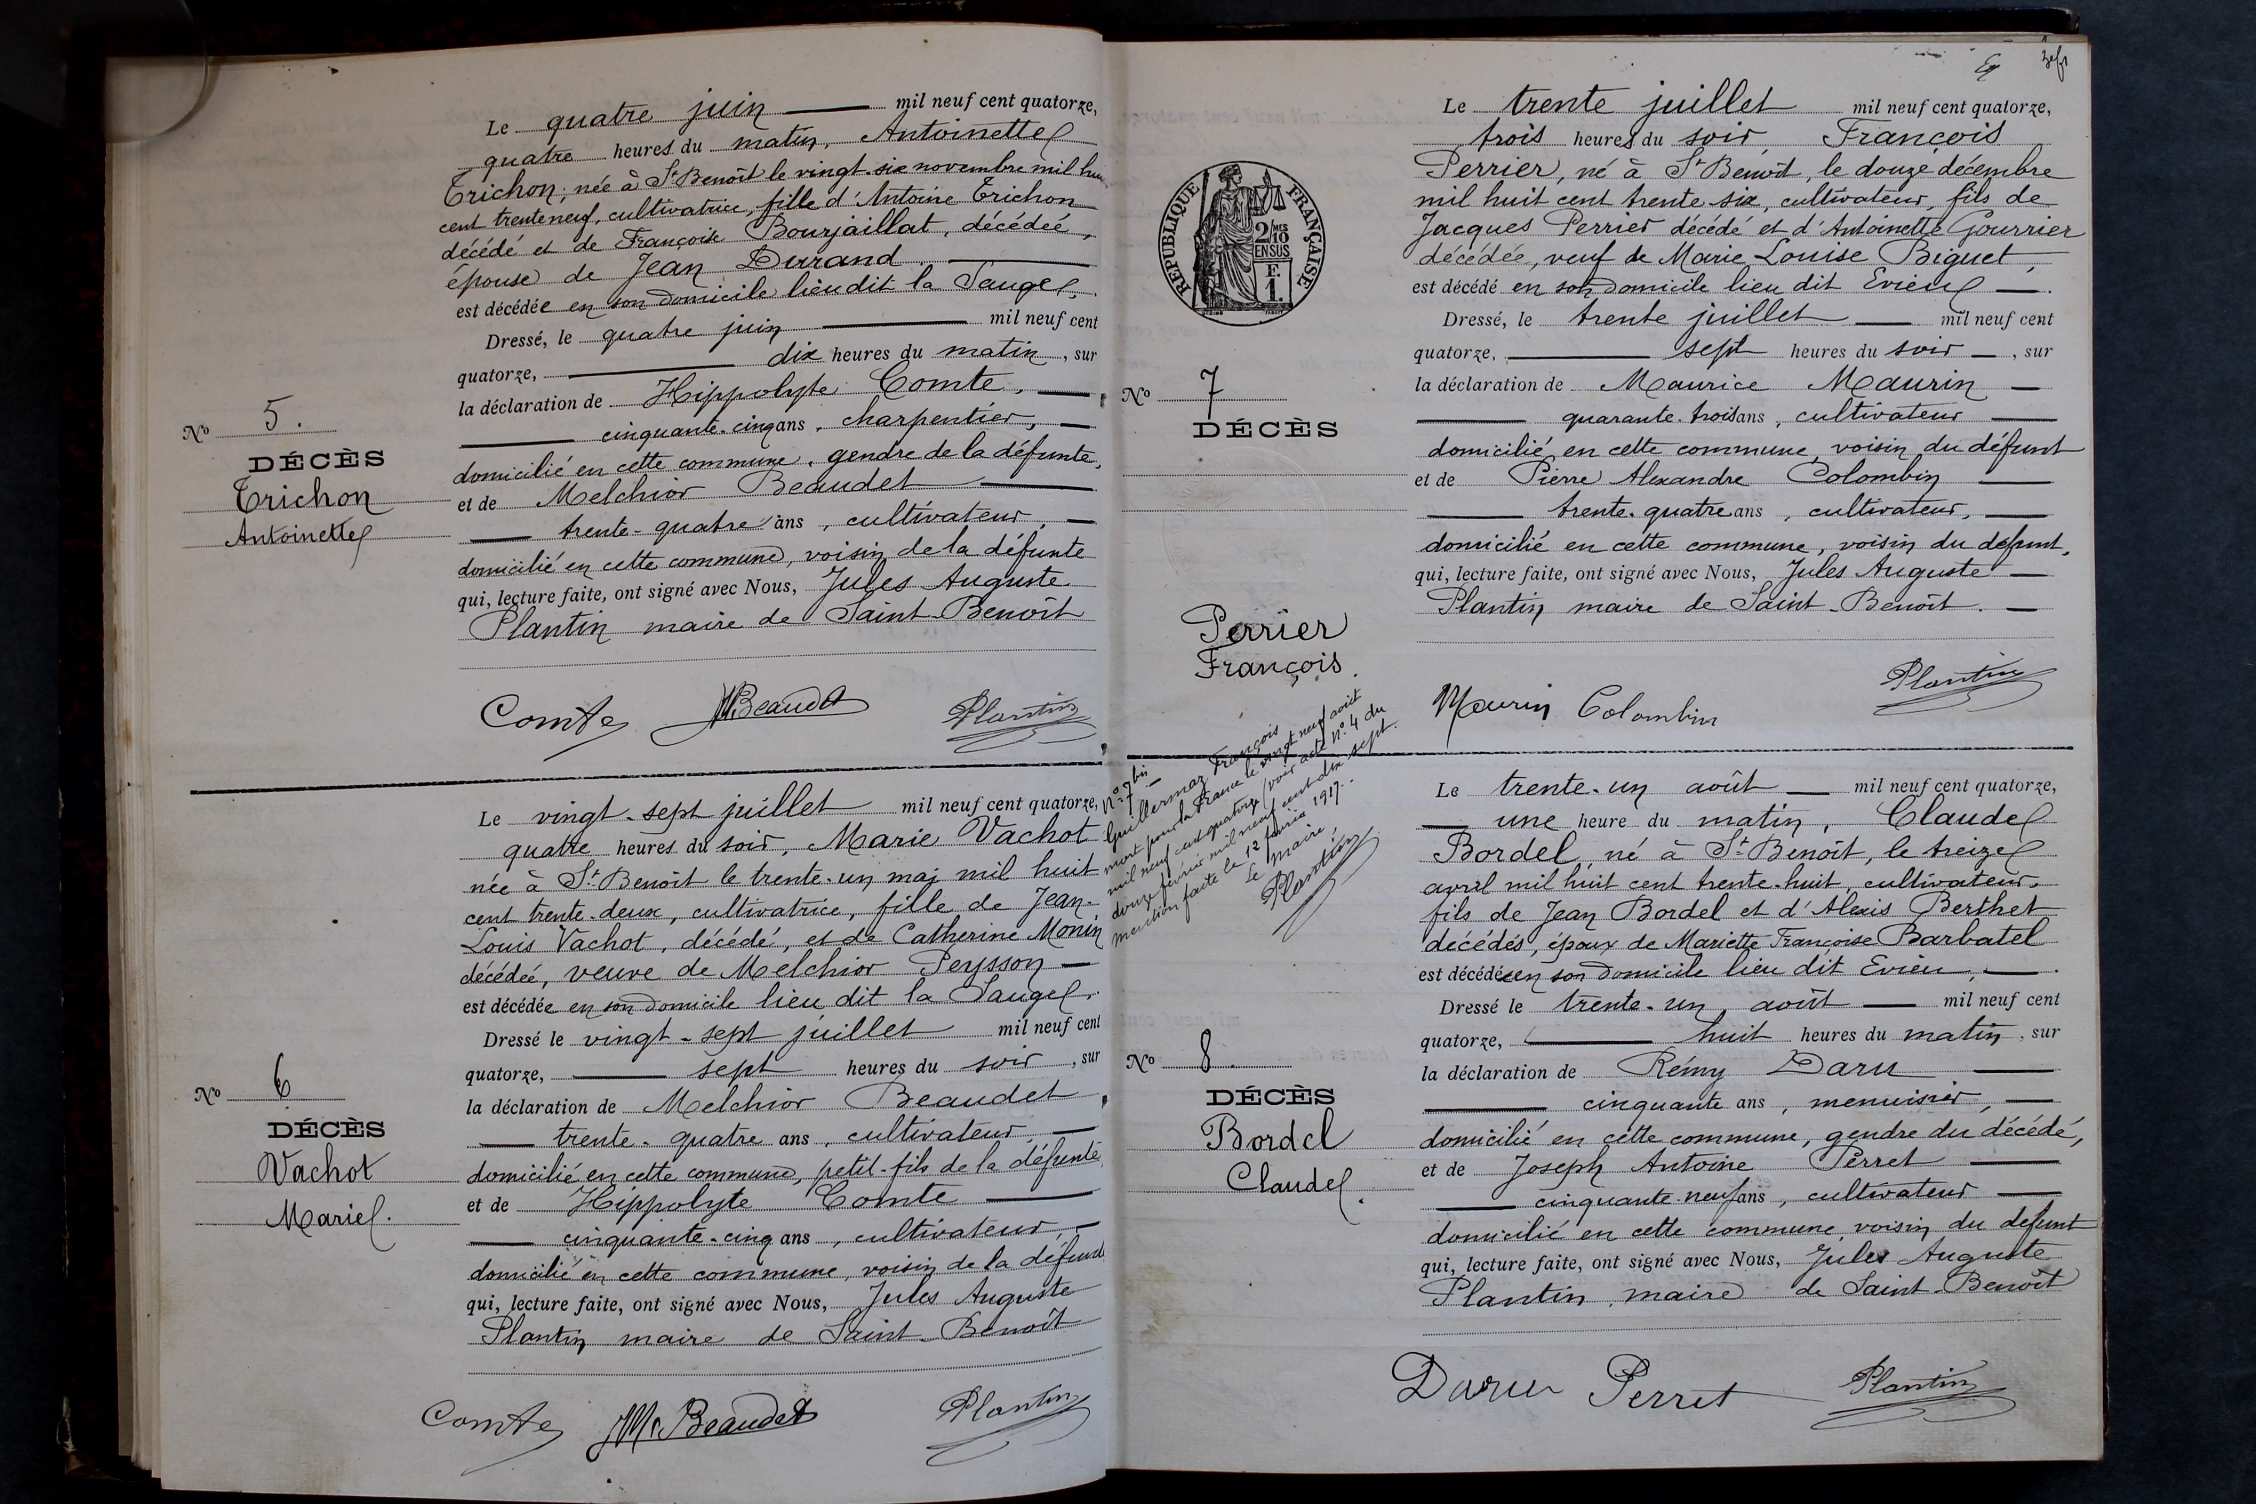 Le quatre juin mil neuf cent quatorze,
quatre heures du matin, Antoinette
Trichon, née à St Benoît le vingt-six novembre mil huit
cent trente neuf, cultivatrice, fille d'Antoine Trichon
décédé et de Françoise Bourjaillat, décédée,
épouse de Jean Durand
est décédée en son domicile lieu dit la Sauge.
Dressé, le quatre juin mil neuf cent
quatorze, dix heures du matin, sur
la déclaration de Hippolyte Comte,
cinquante-cinq ans, charpentier,
domicilié en cette commune, gendre de la défunte,
et de Melchior Beaudet
trente-quatre ans, cultivateur,
domicilié en cette commune, voisin de la défunte
qui, lecture faite, ont signé avec Nous, Jules Auguste
Plantin maire de Saint-Benoît
No 5.
DÉCÈS
Trichon
Antoinette
Comte M. Beaudet Plantin
Le vingt-sept juillet mil neuf cent quatorze,
quatre heures du soir, Marie Vachot
née à St Benoît le trente-un mai mil huit
cent trente-deux, cultivatrice, fille de Jean-
Louis Vachot, décédé, et de Catherine Monin
décédée, veuve de Melchior Peysson
est décédée en son domicile lieu dit la Sauge.
Dressé le vingt-sept juillet mil neuf cent
quatorze, sept heures du soir, sur
la déclaration de Melchior Beaudet
trente-quatre ans, cultivateur,
domicilié en cette commune, petit-fils de la défunte,
et de Hippolyte Comte
cinquante-cinq ans, cultivateur,
domicilié en cette commune, voisin de la défunte
qui, lecture faite, ont signé avec Nous, Jules Auguste
Plantin maire de Saint-Benoît
No 6
DÉCÈS
Vachot
Marie.
Comte M. Beaudet Plantin
RÉPUBLIQUE FRANÇAISE
2/10
MES
EN SUS
F.
1.
Le trente juillet mil neuf cent quatorze,
trois heures du soir, François
Perrier, né à St Benoît, le douze décembre
mil huit cent trente-six, cultivateur, fils de
Jacques Perrier décédé et d'Antoinette Gourrier
décédée, veuf de Marie Louise Biguet,
est décédé en son domicile lieu dit Evieu.
Dressé, le trente juillet mil neuf cent
quatorze, sept heures du soir, sur
la déclaration de Maurice Maurin
quarante-trois ans, cultivateur
domicilié en cette commune, voisin du défunt
et de Pierre Alexandre Colombin
trente-quatre ans, cultivateur,
domicilié en cette commune, voisin du défunt,
qui, lecture faite, ont signé avec Nous, Jules Auguste
Plantin maire de Saint-Benoît.
No 7
DÉCÈS
Perrier
François.
Maurin Colombin Plantin
No 7 bis
Guillermaz François
mort pour la France le vingt neuf août
mil neuf cent quatorze (voir acte No 4 du
douze février mil neuf cent dix sept.
mention faite le 12 février 1917.
Le Maire,
Plantin
Le trente-un août mil neuf cent quatorze,
une heure du matin, Claude
Bordel, né à St Benoît, le treize
avril mil huit cent trente-huit, cultivateur,
fils de Jean Bordel et d'Alexis Berthet
décédés, époux de Mariette Françoise Barbatel
est décédé en son domicile lieu dit Evieu,
Dressé le trente-un août mil neuf cent
quatorze, huit heures du matin, sur
la déclaration de Rémy Daru
cinquante ans, menuisier,
domicilié en cette commune, gendre du décédé,
et de Joseph Antoine Perret
cinquante neuf ans, cultivateur
domicilié en cette commune, voisin du défunt
qui, lecture faite, ont signé avec Nous, Jules Auguste
Plantin, maire de Saint-Benoît
No 8.
DÉCÈS
Bordel
Claude.
Daru Perret Plantin